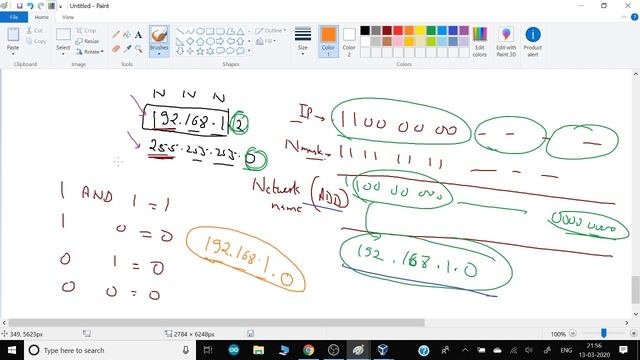 Untitled - Paint
File Home View
Paste Cut Copy Select Crop Resize Rotate Brushes Outline Fill Size Color 1 Color 2 Edit colors Edit with Paint 3D Product alert
Clipboard Image Tools Shapes Colors
N N N
192.168.1.2
255.255.255.0
1 AND 1 = 1
1 0 = 0
0 1 = 0
0 0 = 0
192.168.1.0
IP → 1100 00 00
Nmask → 1111 11 11
Network name (ADD) 1100 00 00
0000 0000
192.168.1.0
349, 5623px 2784 × 6248px 100%
Type here to search ENG 21:56
13-03-2020